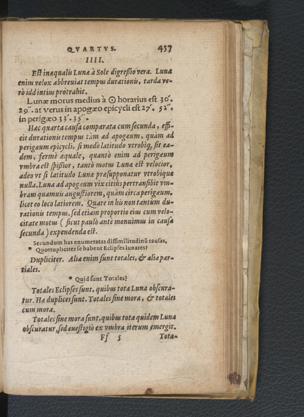 QVARTVS. 457
IIII.
Est inæqualis Lunæ à Sole digressio vera. Luna
enim velox abbreuiat tempus durationis, tarda ve-
rò id intius protrahit.
Lunæ motus medius à ☉ horarius est 30'.
29''. at verus in apogæo epicycli est 27'. 52''.
in perigæo 33'. 35''.
Hac quarta causa comparata cum secunda, effi-
cit durationis tempus tàm ad apogæum, quàm ad
perigæum epicycli, si modò latitudo vtrobiq; sit ea-
dem, fermè æquale, quantò enim ad perigæum
vmbra est spissior, tantò motus Lunæ est velocior,
adeo vt si latitudo Lunæ præsupponatur vtrobique
nulla. Luna ad apogæum vix citiùs pertransibit vm-
bram quamuis angustiorem, quàm circa perigæum,
licet eo loco latiorem. Quare in his non tantum du-
rationis tempus, sed etiam proportio eius cum velo-
citate motus (sicut paulò antè monuimus in causa
secunda) expendenda est.
Secundum has enumeratas dissimilitudinū causas,
* Quotuplicitèr se habent Eclipses lunares?
Dupliciter. Aliæ enim sunt totales, & aliæ par-
tiales.
* Quid sunt Totales?
Totales Eclipses sunt, quibus tota Luna obscura-
tur. Hæ duplices sunt. Totales sine mora, & totales
cum mora.
Totales sine mora sunt, quibus tota quidem Luna
obscuratur, sed è vestigiò ex vmbra iterum emergit.
Ff 5 Tota-